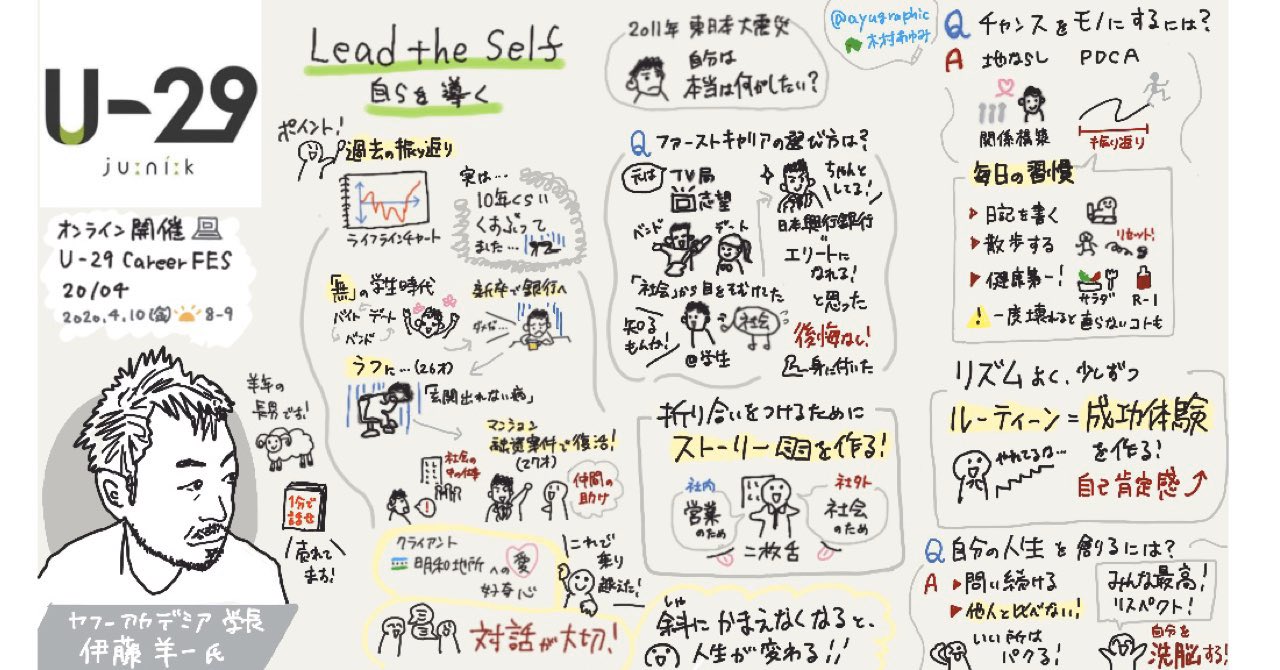 U-29
ju:ní:k
オンライン開催
U-29 Career FES
20/04
2020.4.10(金) 8-9
羊年の
長男です!
1分で
話せ
売れて
ます!
ヤフーアカデミア 学長
伊藤 羊一氏
Lead the Self
自らを導く
ポイント!
過去の振り返り
ライフラインチャート
実は…
10年くらい
くすぶって
ました…
「無」の学生時代
バイト デート
バンド
新卒で銀行へ
ダメだ…
ラフに…(26才)
「玄関出れない病」
マンション
融資案件で復活!
(27才)
社会の
中の仕事
!
仲間の
助け
クライアント
明和地所への愛
好奇心
これで
乗り
越えた!
対話が大切!
2011年 東日本大震災
自分は
本当は何がしたい?
@ayugraphic
木村あゆみ
Q ファーストキャリアの選び方は?
元は TV局
志望
バンド デート
ちゃんと
してる!
日本興行銀行
エリートに
なれる!
と思った
「社会」から目をそむけてた
知る
もんか!
@学生
社会
後悔なし!
身に付いた
折り合いをつけるために
ストーリーを作る!
社内
営業
のため
社外
社会
のため
二枚舌
斜にかまえなくなると、
しゃ
人生が変わる!!
Q チャンスをモノにするには?
A 地ならし PDCA
関係構築
振り返り
毎日の習慣
日記を書く
散歩する
リセット!
健康第一!
サラダ R-1
一度壊れると直らないコトも
リズムよく、少しずつ
ルーティーン=成功体験
を作る!
やれてるな…
自己肯定感
Q 自分の人生を創るには?
A 問い続ける
他人と比べない!
いい所は
パクる!
みんな最高!
リスペクト!
自分を
洗脳する!